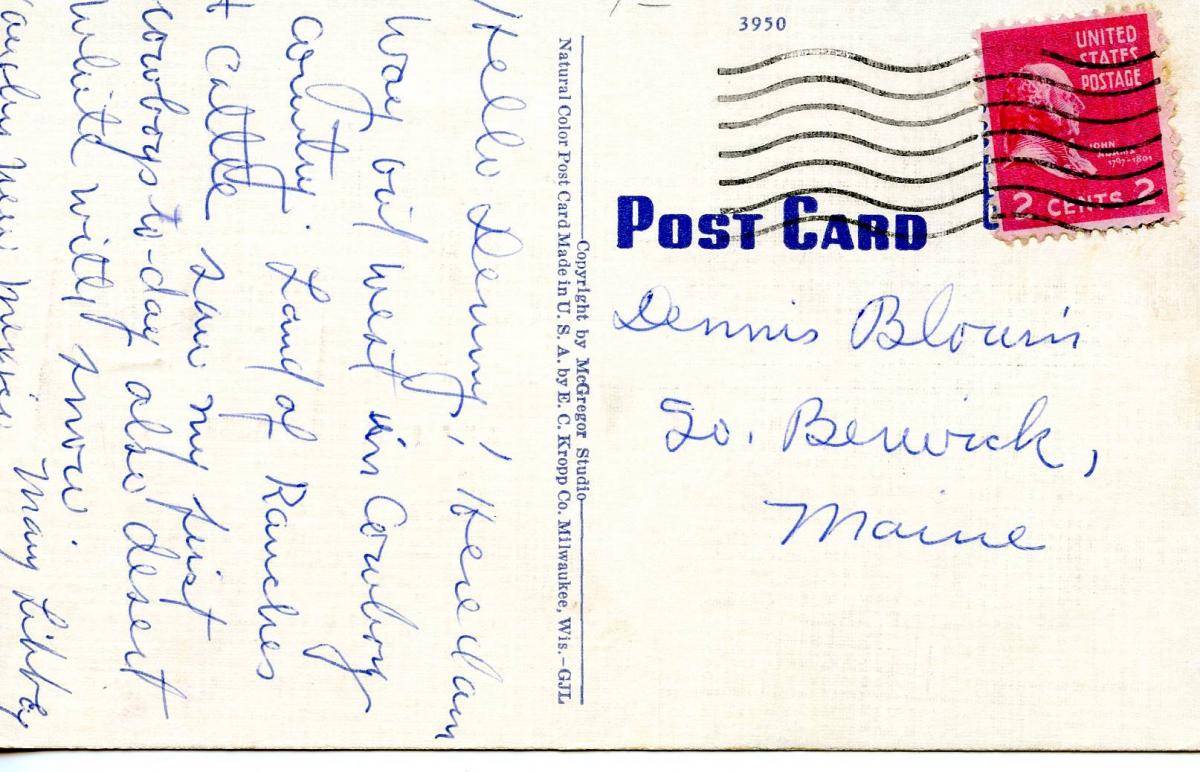 3950
UNITED
STATES
POSTAGE
JOHN
ADAMS
1797-1801
2 CENTS 2
POST CARD
Dennis Blouin
So. Berwick,
Maine
Copyright by McGregor Studio
Natural Color Post Card Made in U. S. A. by E. C. Kropp Co. Milwaukee, Wis.-GJL
Hello Denny! Here I am
way out west in Cowboy
Country. Land of Ranches
+ Cattle saw my first
cowboys to-day also desert
white with snow.
Mary Libbey